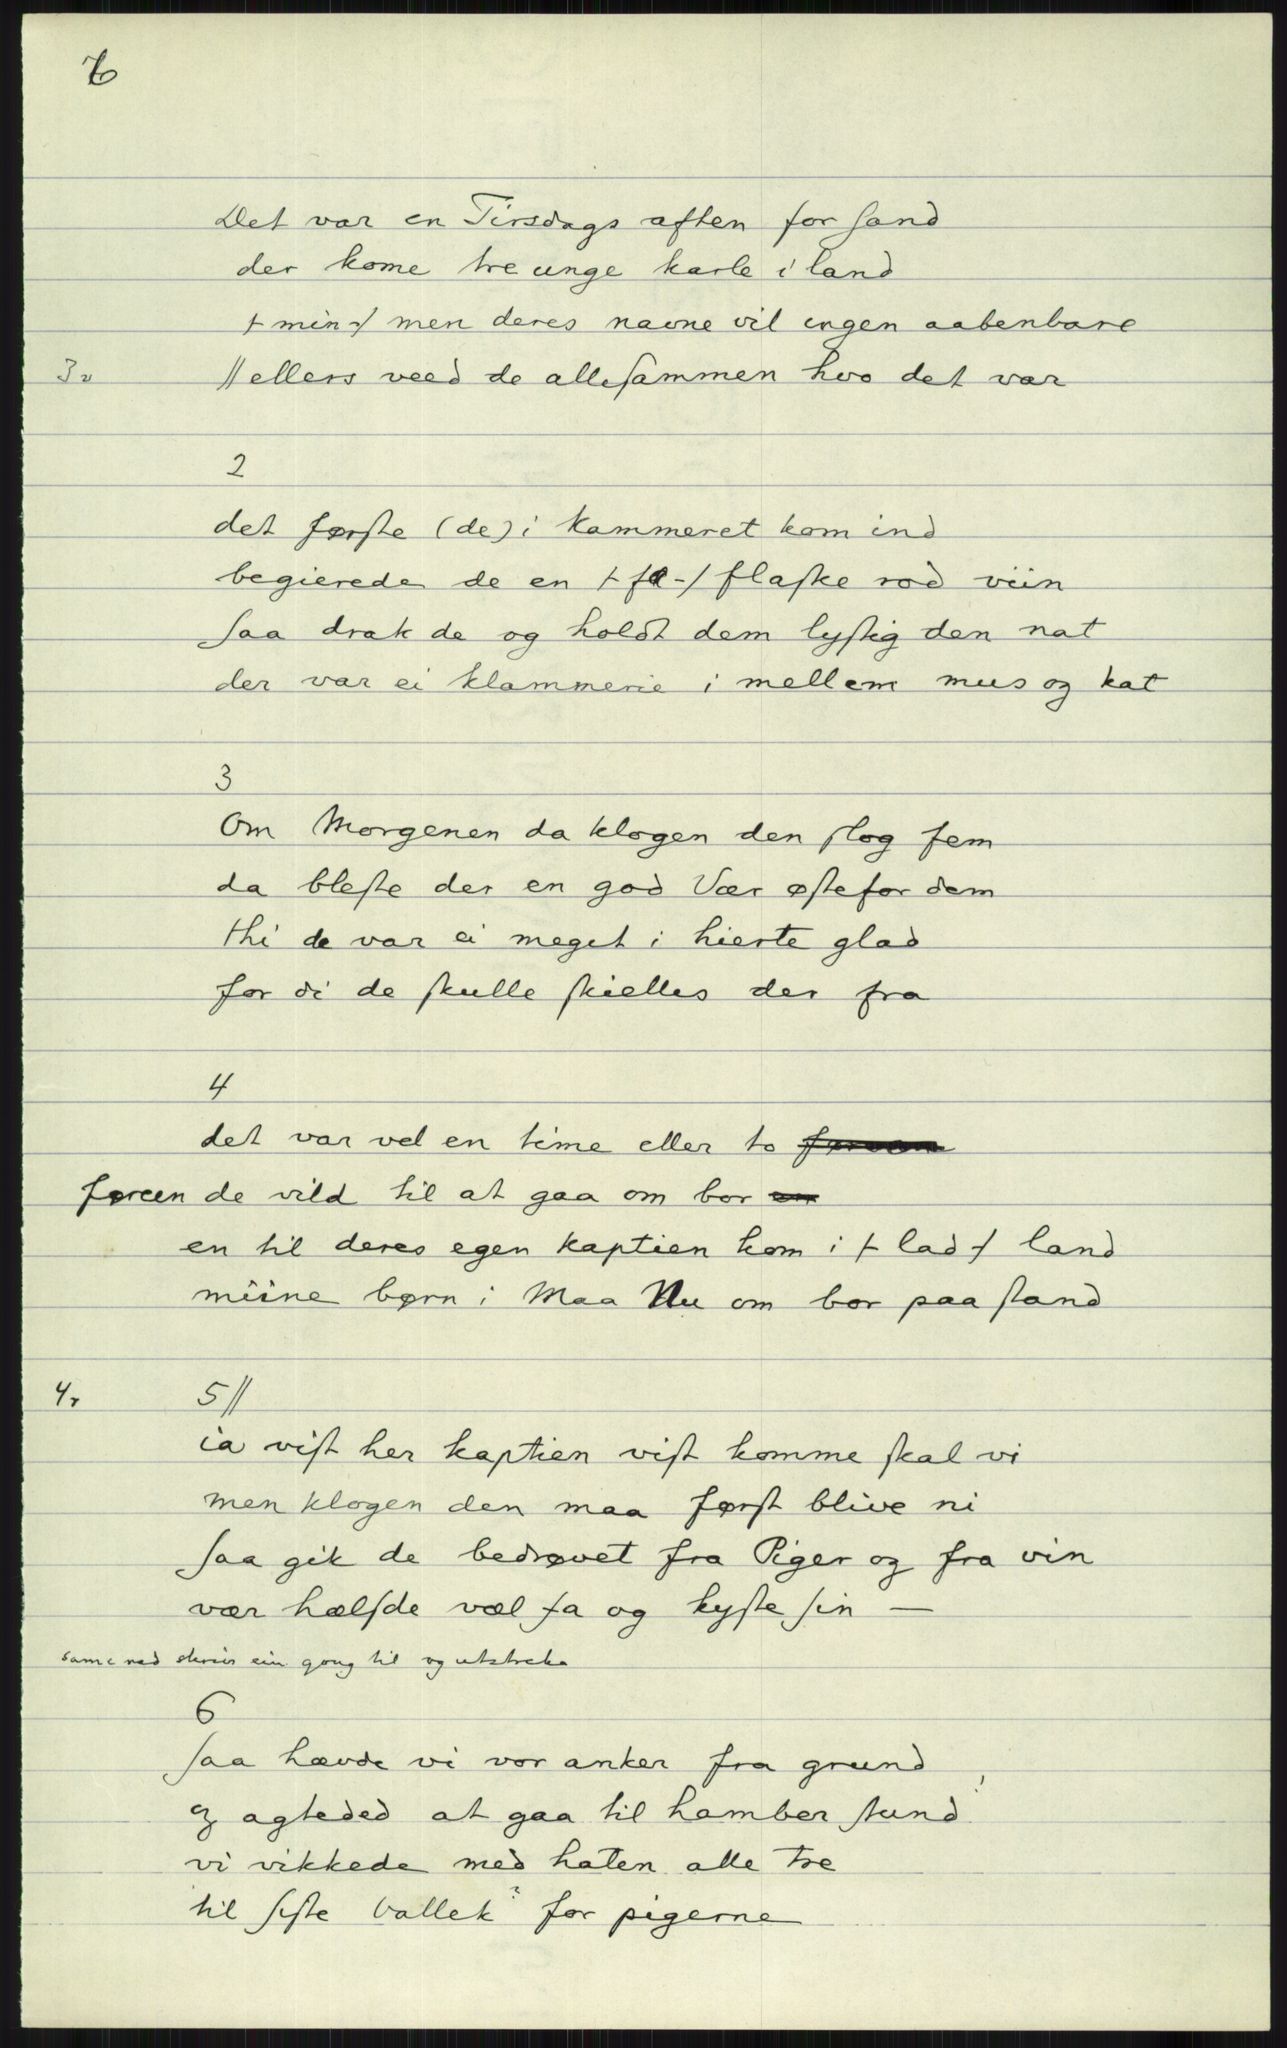 6
Det var en Tirsdags aften for sand
der kome tre unge karle i land
⊦ min ⊣ men deres navne vil ingen aabenbare
3v || ellers veed de allesammen hvo det var
2
det første (de) i kammeret kom ind
begierede de en ⊦ fla- ⊣ flaske rød viin
saa drak de og holdt dem lystig den nat
der var ei klammerie i mellem mus og kat
3
Om Morgenen da klogen den slog fem
da bleste der en god Vær østefor dem
thi de var ei meget i hierte glad
for di de skulle skielles der fra
4
det var vel en time eller to
føreen de vild til at gaa om bor
en til deres egen kaptien kom i ⊦ lad ⊣ land
miine børn i Maa Nu om bor paa stand
4r 5 ||
ia vist her kaptien vist komme skal vi
men klogen den maa først blive ni
saa gik de bedrøvet fra Piger og fra vin
vær hælsde væl fa og kyste sin —
same ved skrive ein gong til og utstreka
6
saa hævde vi vor anker fra grund
og agteded at gaa til hamber sund
vi vikkede med haten alle tre
til siste vallek? for pigerne